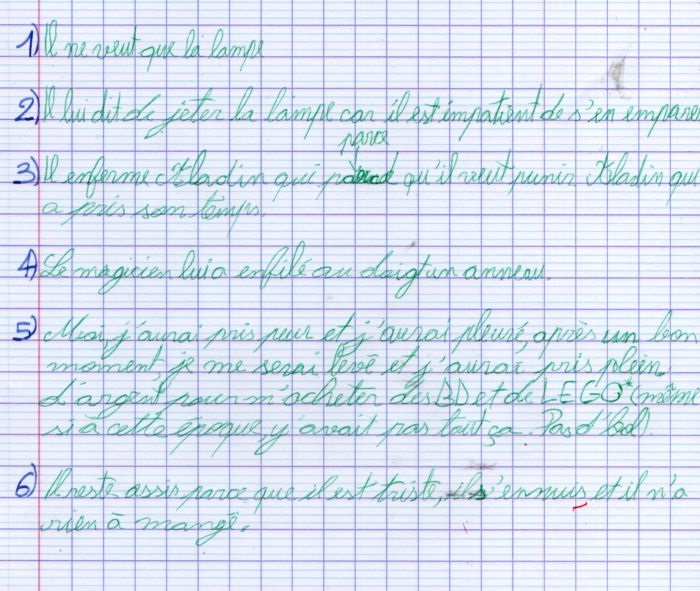 1) Il ne veut que la lampe
2) Il lui dit de jeter la lampe car il est impatient de s'en emparer
parce
3) Il enferme Aladin qui qu'il veut punir Aladin qui
a pris son temps.
4) Le magicien lui a enfilé au doigt un anneau.
5) Moi, j'aurai pris peur et j'aurai pleuré, après un bon
moment, je me serai levé et j'aurai pris plein
d'argent pour m'acheter des BD et de LEGO* (même
si à cette époque, y'avait pas tout ça. Pas d'bol).
6) Il reste assis parce que il est triste, il s'ennuis et il n'a
rien à mangé.